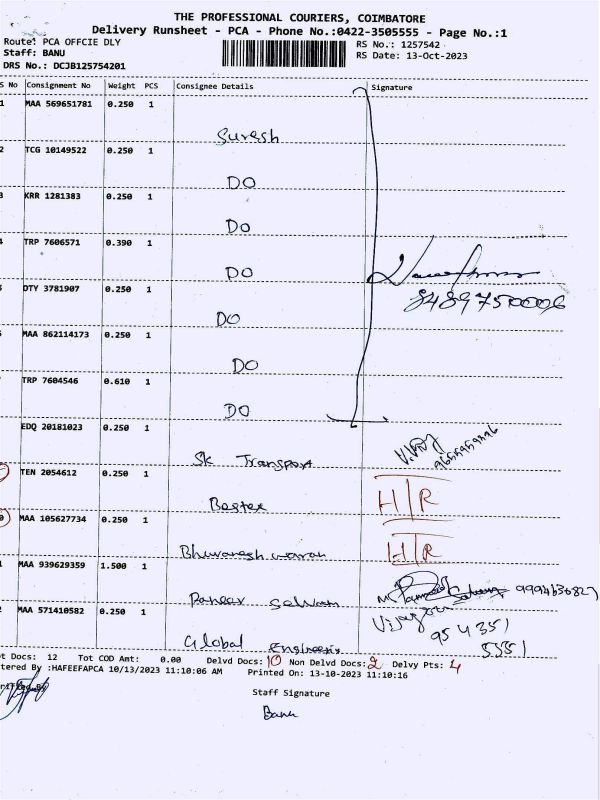 THE PROFESSIONAL COURIERS, COIMBATORE
Delivery Runsheet - PCA - Phone No.:0422-3505555 - Page No.:1
Route: PCA OFFCIE DLY
RS No.: 1257542
Staff: BANU
RS Date: 13-Oct-2023
DRS No.: DCJB125754201
S No Consignment No Weight PCS Consignee Details Signature
1 MAA 569651781 0.250 1
Suresh
2 TCG 10149522 0.250 1
DO
3 KRR 1281383 0.250 1
DO
4 TRP 7606571 0.390 1
DO
8489750006
DTY 3781907 0.250 1
DO
MAA 862114173 0.250 1
DO
7 TRP 7604546 0.610 1
DO
EDQ 20181023 0.250 1
SK Transport
TEN 2054612 0.250 1
Bestex H/R
0 MAA 105627734 0.250 1
Bhuvaneshwaran H/R
1 MAA 939629359 1.500 1
Paneer Selvam 9994636827
2 MAA 571410582 0.250 1
Global
954351
5551
t Docs: 12 Tot COD Amt: 0.00 Delvd Docs: 10 Non Delvd Docs: 2 Delvy Pts: 4
tered By :HAFEEFAPCA 10/13/2023 11:10:06 AM Printed On: 13-10-2023 11:10:16
Staff Signature
Banu